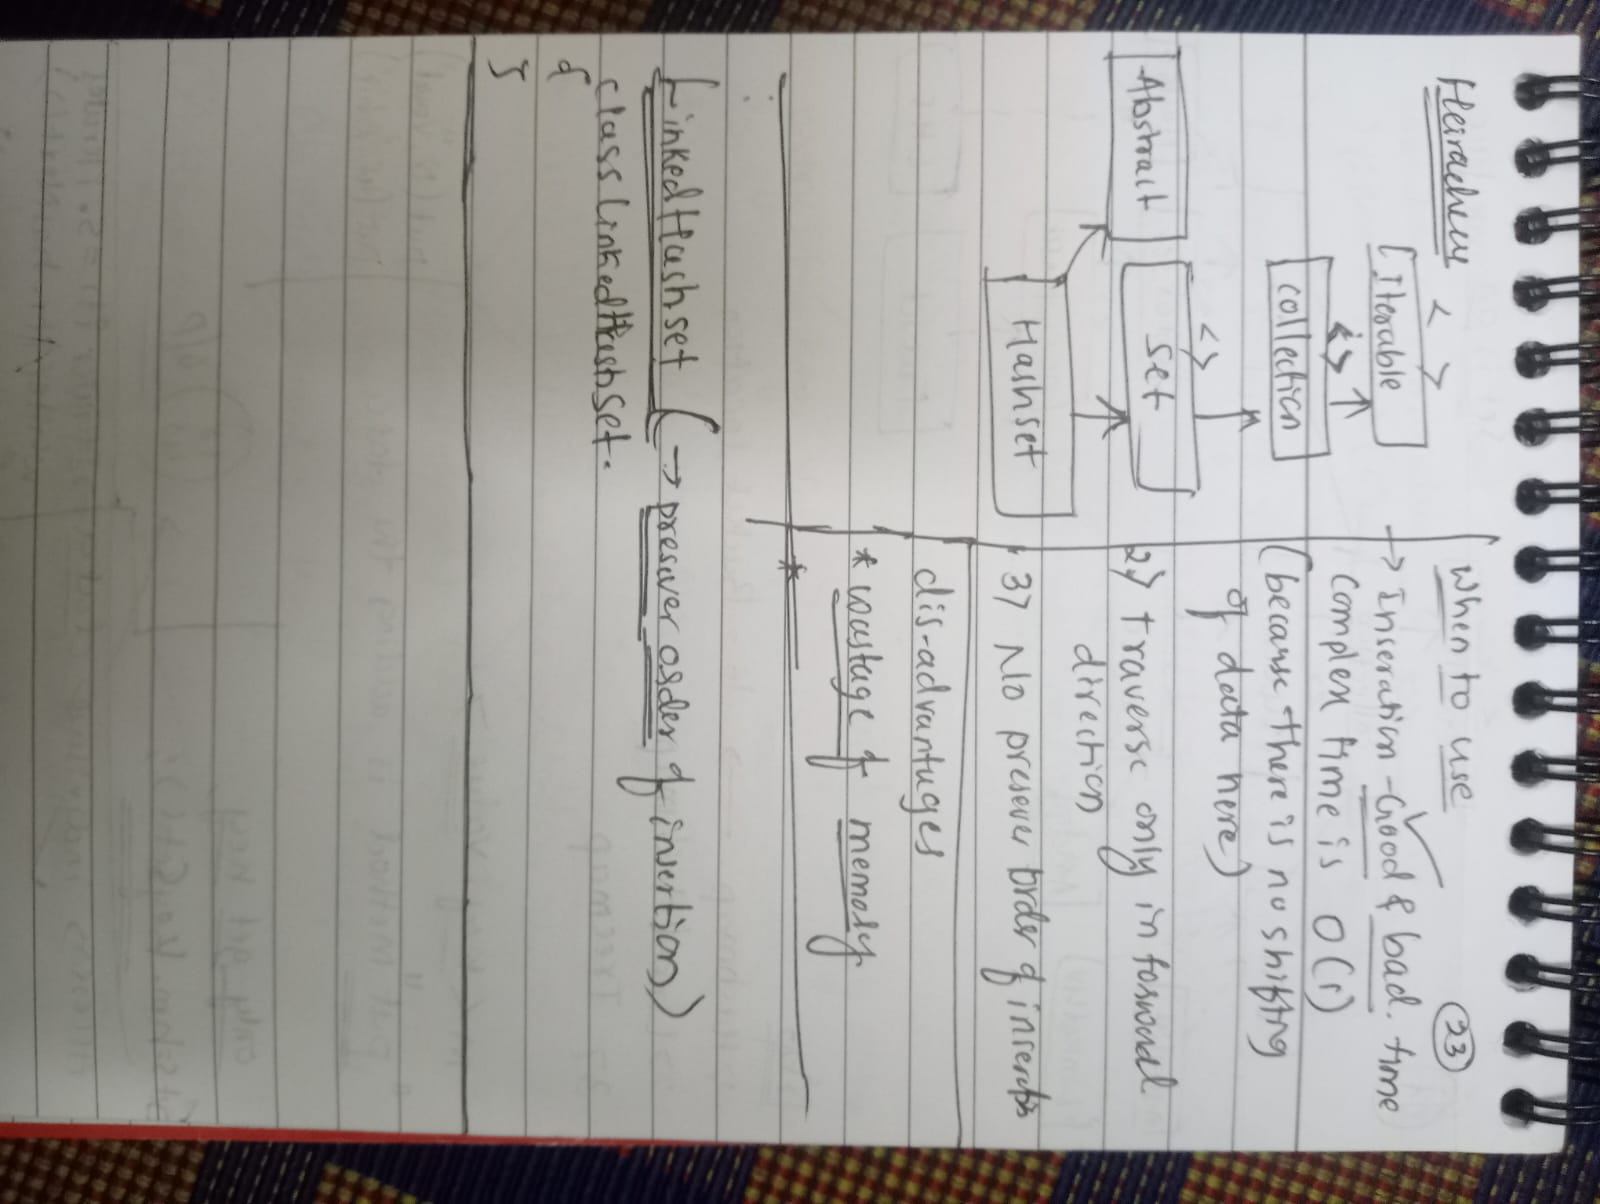 Heirachey
< >
Iterable
<i>
collection
< >
Abstrait
set
Hashset
23
When to use
→ Inseration - Good & bad. time
complex time is O(1)
(because there is no shifting
of data here)
2) traverse only in forward
direction
3) No presever order of insertion
dis-advantages
* wastage of memory
*
LinkedHashset (→ presever order of invertion)
class LinkedHashset.
{
}